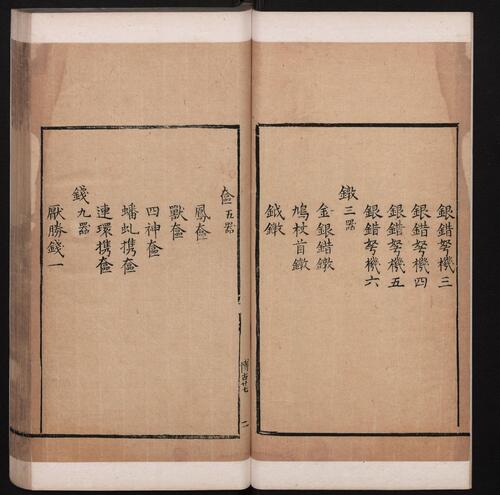 銀錯弩機三
銀錯弩機四
銀錯弩機五
銀錯弩機六
鐓三器
金銀錯鐓
鳩杖首鐓
鉞鐓
奩五器
鳳奩
獸奩
四神奩
蟠虬携奩
連環携奩
錢九器
厭勝錢一
博古廿七
二